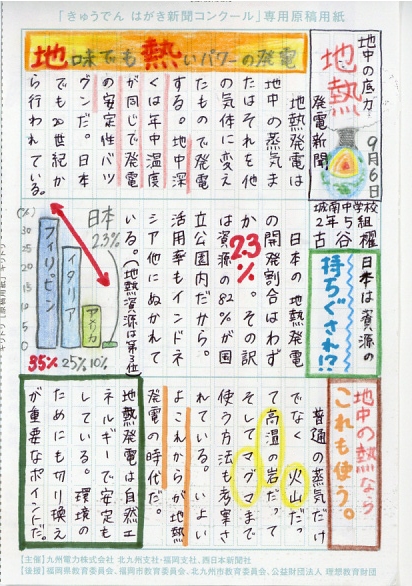 「きゅうでん はがき新聞コンクール」専用原稿用紙
地中の底力
地熱
発電新聞
9月6日
城南中学校
2年5組
古谷 櫂
地味でも熱いパワーの発電
地熱発電は
地中の蒸気ま
たはそれを他
の気体に変え
たもので発電
する。地中深
くは年中温度
が同じで発電
の安定性バツ
グンだ。日本
でも20世紀か
ら行われている。
日本は資源の
持ちぐされ!?
日本の地熱発電
の開発割合はわず
か2.3%。その訳
は資源の82%が国
立公園内だから。
活用率もインドネ
シア他にぬかれて
いる。(地熱資源は第3位)
(%)
35
30
25
20
15
10
5
0
フィリピン
イタリア
アメリカ
日本
2.3%
35%
25%
10%
地中の熱なら
これも使う。
普通の蒸気だけ
でなく、火山だっ
て高温の岩だって
そしてマグマまで
使う方法も考案さ
れている。いよい
よこれからが地熱
発電の時代だ。
地熱発電は自然エ
ネルギーで安定も
している。環境の
ためにも切り換え
が重要なポイントだ。
【主催】九州電力株式会社 北九州支社・福岡支社、西日本新聞社
【後援】福岡県教育委員会、福岡市教育委員会、北九州市教育委員会、公益財団法人 理想教育財団